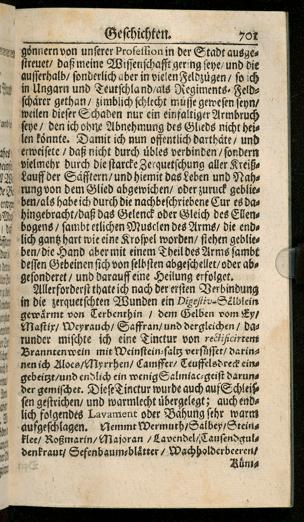 Geschichten. 701
gönnern von unserer Profession in der Stadt ausge-
streuet/ daß meine Wissenschafft gering seye/ und die
ausserhalb/ sonderlich aber in vielen Feldzügen/ so ich
in Ungarn und Teutschland/ als Regiments-Feld-
schärer gethan/ zimblich schlecht müsse gewesen seyn/
weilen dieser Schaden nur ein einfältiger Armbruch
seye/ den ich ohne Abnehmung des Glieds nicht hei-
len könnte. Damit ich nun offentlich darthäte/ und
erweisete/ daß nicht durch übles verbinden/ sondern
vielmehr durch die starcke Zerquetschung aller Kreiß-
Lauff der Säfftern/ und hiemit das Leben und Nah-
rung von dem Glied abgewichen/ oder zuruck geblie-
ben/ als habe ich durch die nachbeschriebene Cur es da-
hingebracht/ daß das Gelenck oder Gleich des Ellen-
bogens/ sambt etlichen Musclen des Arms/ die end-
lich gantz hart wie eine Krospel worden/ stehen geblie-
ben/ die Hand aber mit einem Theil des Arms sambt
dessen Gebeinen sich von selbsten abgeschellet/ oder ab-
gesönderet/ und darauf die Heilung erfolget.
Allerforderst thate ich nach der ersten Verbindung
in die zerquetschten Wunden ein Digestiv-Sälblein
gewärmt von Terbenthin/ dem Gelben vom Ey/
Mastix/ Weyrauch/ Saffran/ und dergleichen/ da-
runder mischte ich eine Tinctur von rectificirtem
Branntenwein mit Weinstein-saltz versüsset/ darin-
nen ich Aloes/ Myrrhen/ Campffer/ Teuffelsdreck ein-
gebeitzt/ und endlich ein wenig Salmiac-geist darun-
der gemischet. Diese Tinctur wurde auch auf Schleis-
sen gestrichen/ und warmlecht übergelegt; auch end-
lich folgendes Lavament oder Bähung sehr warm
aufgeschlagen. Nemmt Wermuth/ Salbey/ Stein-
klee/ Roßmarin/ Majoran/ Lavendel/ Tausendgul-
denkraut/ Sefenbaum-blätter/ Wachholderbeeren/
Küm-